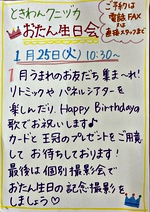 ときわんクニヅカ
おたん生日会
ご予約は
電話FAX
は
直接スタッフまで
1月25日(火) 10:30~
1月うまれのお友だち集ま~れ!
リトミックやパネルシアターを
楽しんだり Happy Birthdayの
歌でお祝いします♪
カードと王冠のプレゼントをご用意
して お待ちしております!
最後は個別撮影会で
おたん生日の記念撮影を
しましょう♡